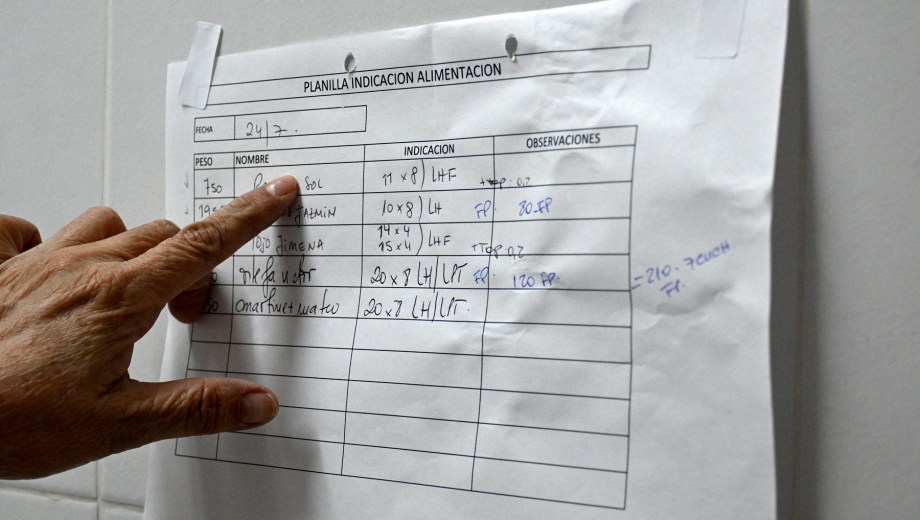 PLANILLA INDICACION ALIMENTACION
FECHA 24/7.
PESO NOMBRE INDICACION OBSERVACIONES
750 SOL 11 x 8) LHF + TOP: 0,2
JAZMIN 10 x 8) LH FP. 80 FP
14 x 4
JIMENA 15 x 4) LHF + TOP 0,2
20 x 8 LH/LPT FP. 120 FP. = 210.
FP.
20 x 8 LH/LPT.